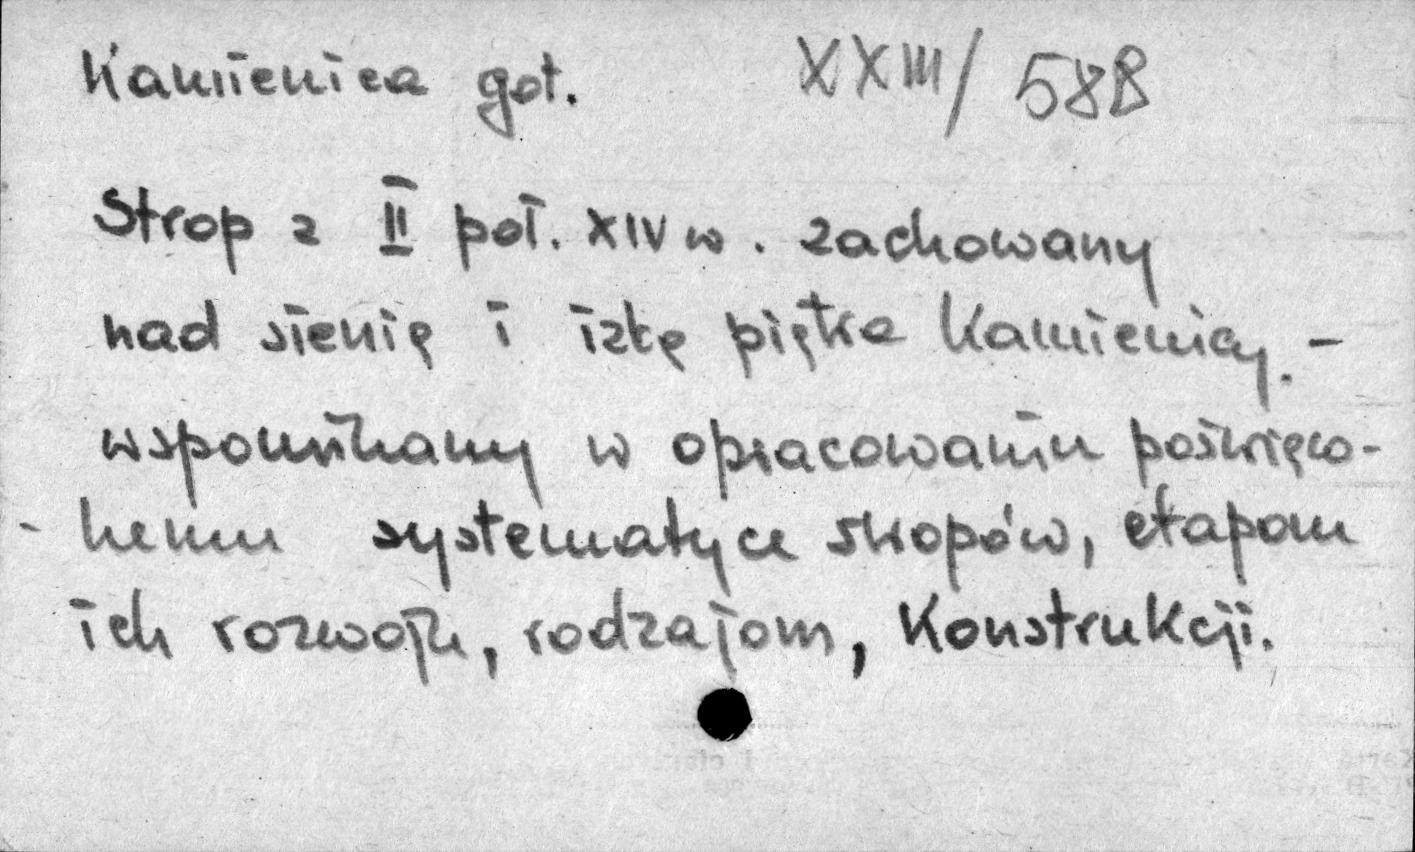 Kamienica got. XXIII/588
Strop z II poł. XIV w. zachowany
nad sienią i izbą piętra Kamienicy. -
wspomniany w opracowaniu poświęco-
- nemu systematyce stropów, etapom
ich rozwoju, rodzajom, Konstrukcji.